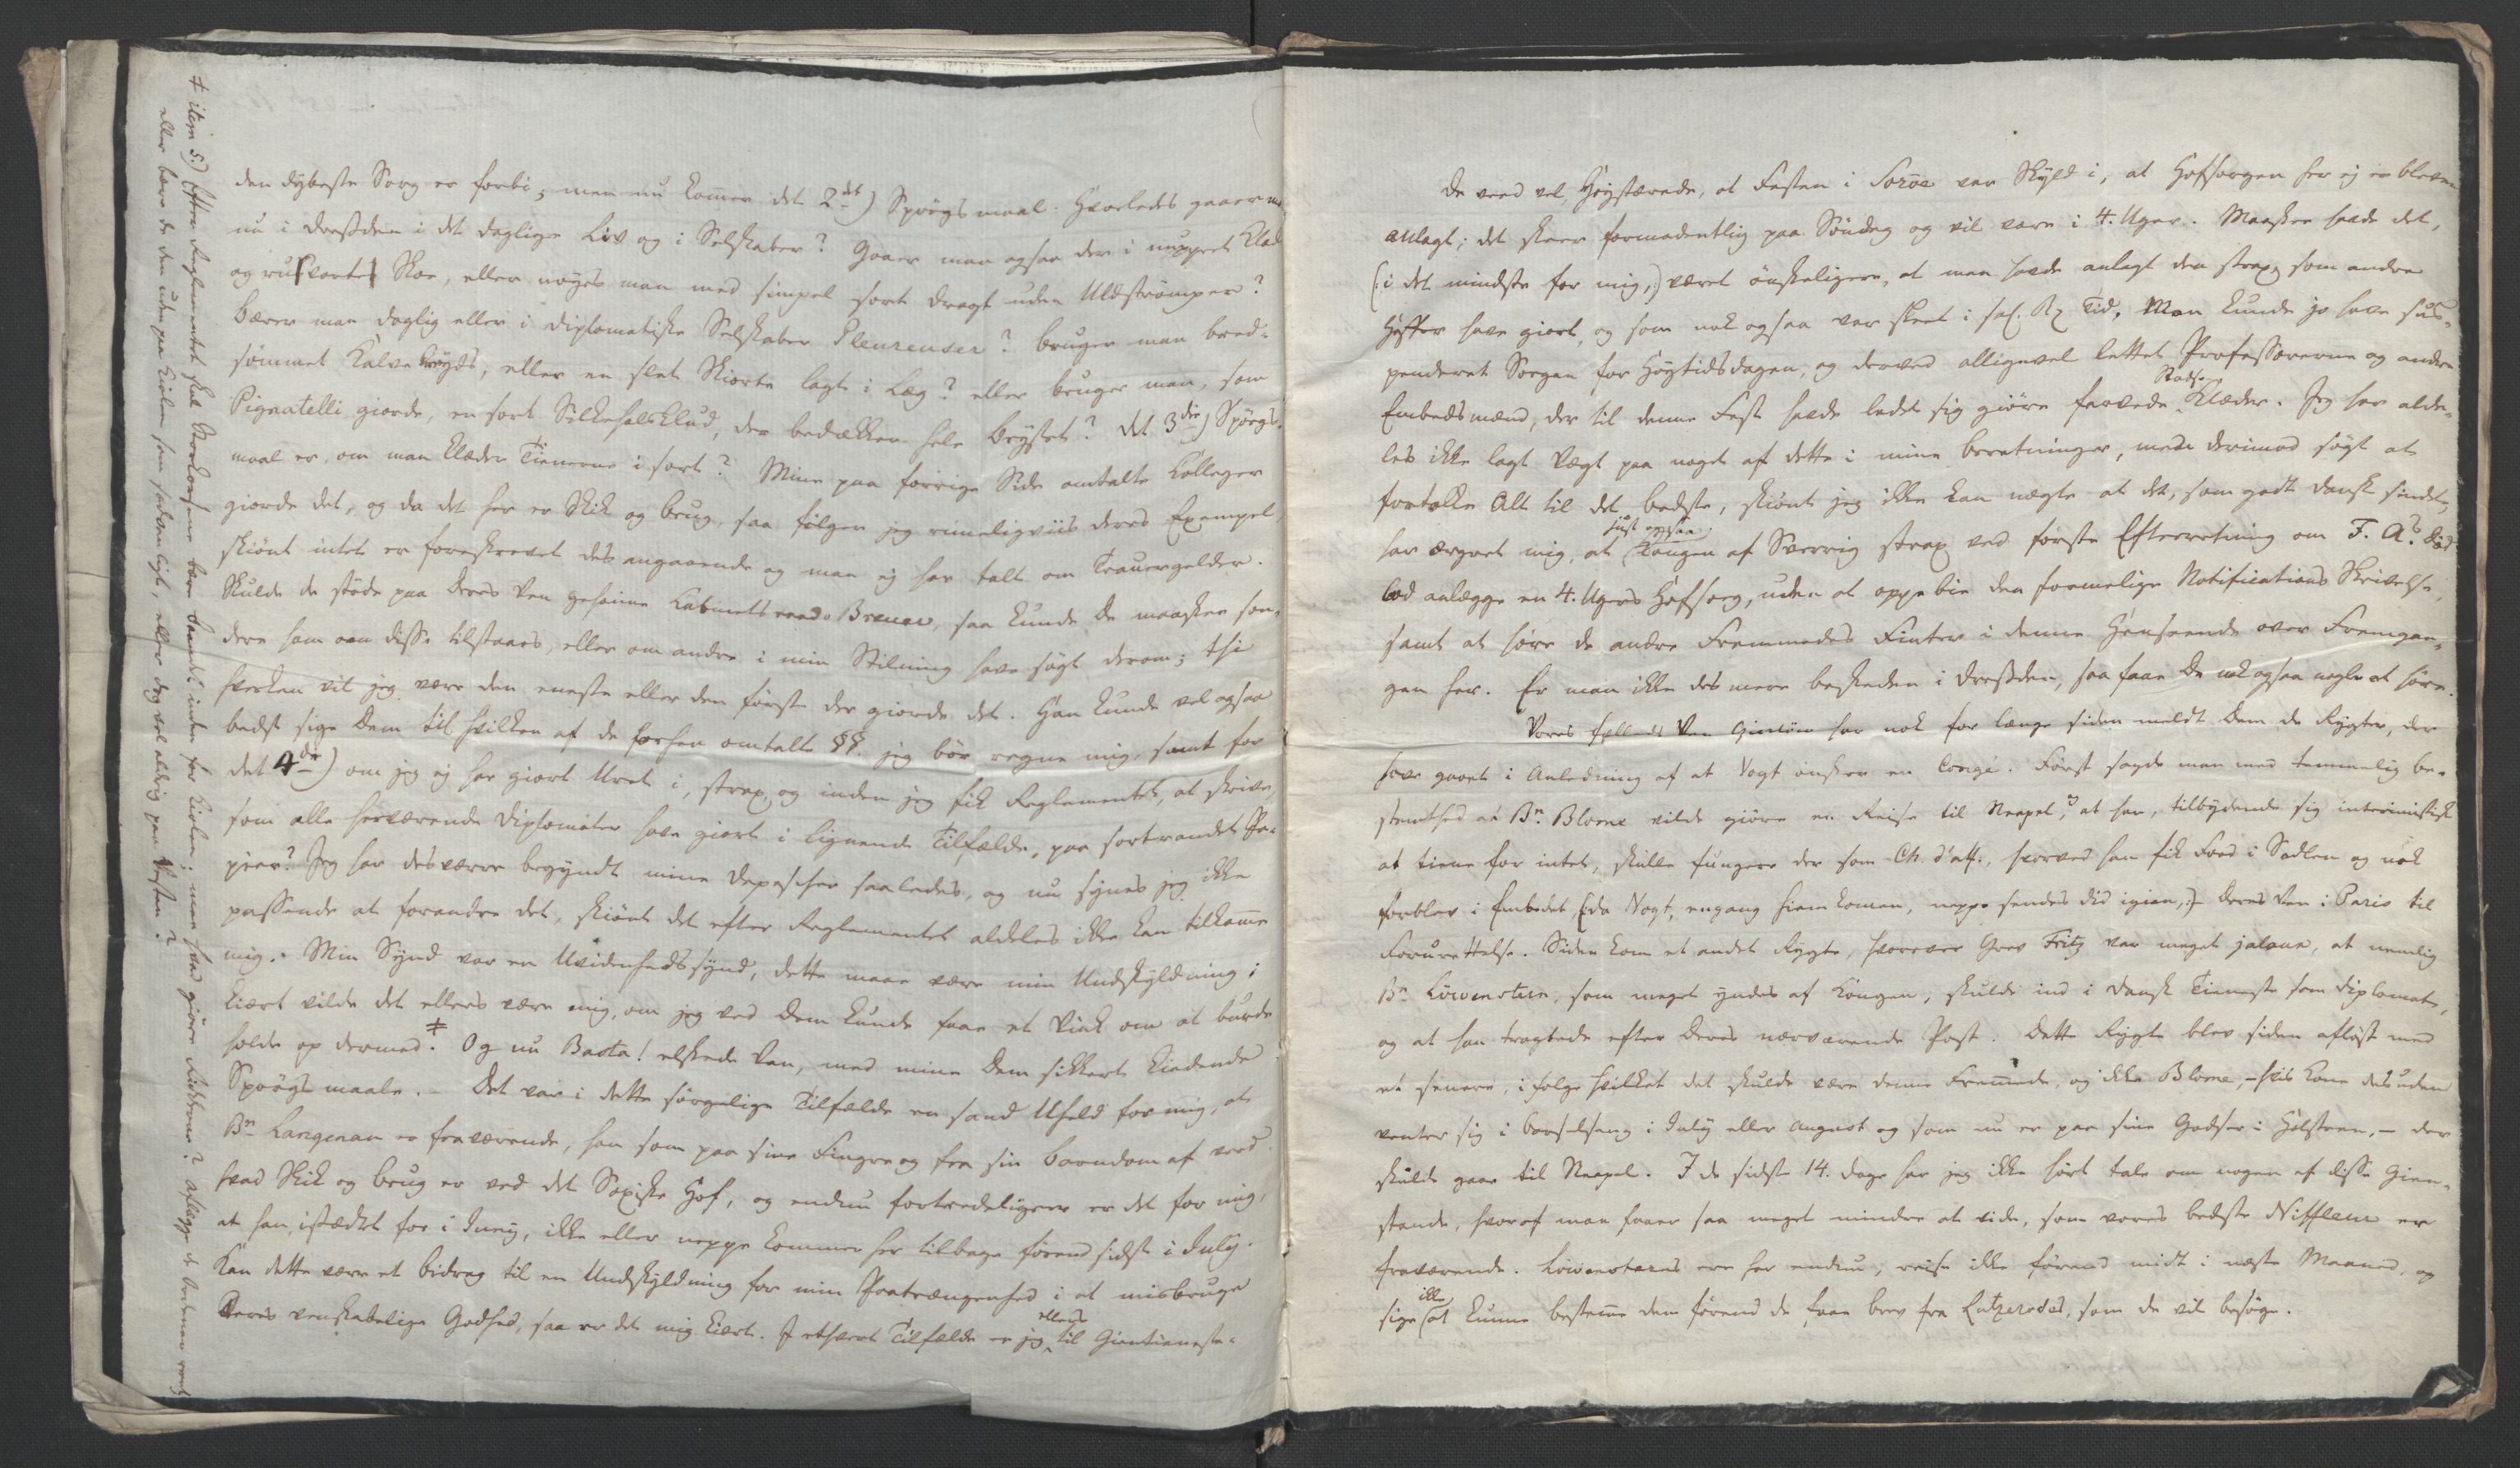 den dybeste Sorg er forbi; men nu kommer det 2det) Spörgsmaal. Hvorledes gaaer man
nu i Dresden i det daglige Liv og i Selskaber? Gaaer man ogsaa der i nuppet Klæd
og rusvortet Skoe, eller nöyes man med simpel sort Dragt uden Uldströmper?
Bærer man daglig eller i diplomatiske Selskaber Pleureuser? bruger man bred-
sömmet Kalvekryds, eller en slet Skiorte lagt i Læg? eller bruger man, som
Pignatelli giorde, en sort Silkehalsklud, der bedækker hele Brystet? Det 3die) Spörgs-
maal er, om man klæder Tienerne i sort? Mine paa forrige Side omtalte Colleger
giorde det, og da det her er Skik og Brug, saa fölger jeg rimeligviis deres Exempel,
skiönt intet er foreskrevet des angaaende og man ej har talt om Trauergelder.
Skulde de stöde paa Deres Ven geheime Cabinetsraad Breuer, saa kunde De maaskee son-
dere ham om disse tilstaaes, eller om andre i min Stilling have sögt derom; thi
hverken vil jeg være den eneste eller den förste der giorde det. Han kunde vel ogsaa
bedst sige Dem til hvilken af de forhen omtalte §§. jeg bör regne mig, samt for
det 4de) om jeg ej har giort Uret i, strax, og inden jeg fik Reglementet, at skrive,
som alle herværende Diplomater have giort i lignende Tilfælde, paa sortrandet Pa-
piir? Jeg har desværre begyndt mine Depescher saaledes, og nu synes jeg ikke
passende at forandre det, skiönt det efter Reglementet aldeles ikke kan tilkomme
mig. Min Synd var en Uvidenhedssynd, dette maae være min Undskyldning;
kiært vilde det ellers være mig, om jeg ved Dem kunde faae et Vink om at burde
holde op dermed.‡ Og nu Basta! elskede Ven, med mine Dem sikkert kiedende
Spörgsmaale. – Det var i dette sörgelige Tilfælde en sand Uheld for mig, at
Bn Langenau er fraværende, han som paa sine Fingre og fra sin Barndom af veed
hvad Skik og Brug er ved det Saxiske Hof, og endnu fortrædeligere er det for mig,
at han, istædet for i Juny, ikke eller neppe kommer her tilbage förend sidst i July.
Kan dette være et Bidrag til en Undskyldning for min Paatrængenhed i at misbruge
Deres venskabelige Godhed, saa er det mig kiært. I ethvert Tilfælde er jeg ellers til Gientieneste-
‡ item 5.) Efter Reglementet skal Kordonerne bæres inden for Kiolen; men hvad giöre Ridderne? aflægge de Ordenen reent
eller bære de den uden paa Kiolen som sædvanligt, eller dog vel aldrig paa Vesten?
De veed vel, Höystærede, at Festen i Soröe var Skyld i, at Hofsorgen her ej er bleven
anlagt; det skeer formodentlig paa Söndag og vil vare i 4. Uger. Maaskee havde det,
(: i det mindste for mig,:) været önskeligere, at man havde anlagt den strax, som andre
Hoffer have giort, og som nok ogsaa var skeet i sal. Rz Tid. Man kunde jo have sus-
penderet Sorgen for Höytidsdagen, og derved alligevel lettet Professorerne og andre
Embedsmænd, der til denne Fest havde ladet sig giöre farvede Stads Klæder. Jeg har alde-
les ikke lagt Vægt paa noget af dette i mine Beretninger, men derimod sögt at
fortolke Alt til det bedste, skiönt jeg ikke kan nægte at det, som godt dansk sindet,
har ærgret mig, at just ogsaa Kongen af Sverrig strax ved förste Efterretning om F. A.s Död
lod anlægge en 4. Ugers Hofsorg, uden at oppebie den formelige Notifications Skrivelse,
samt at höre de andre Fremmedes Finter i denne Henseende over Fremgan-
gen her. Er man ikke des mere beskeden i Dresden, saa faae De nok ogsaa nogle at höre.
Vores fælleds Ven har nok for længe siden meldt Dem de Rygter, der
have gaaet i Anledning af at Vogt önsker en Congé. Först sagde man med temmelig be-
stemthed at Bn. Blome vilde giöre en Reise til Neapel, at han, tilbydende sig interimistisk
at tiene for intet, skulle fungere der som Ch. d'aff., hvorved han fik Fod i Sadlen og nok
forblev i Embedet, (:da Vogt, engang hiemkommen, neppe sendes did igien,:) Deres Ven i Paris til
Forurettelse. Siden kom et andet Rygte, hvorover Grev Fritz var meget jaloux, at nemlig
Bn Löwenstern, som meget yndes af Kongen, skulde ind i dansk Tieneste som Diplomat,
og at han tragtede efter Deres nærværende Post. Dette Rygte blev siden aflöst med
et senere, ifölge hvilket det skulde være denne Fremmede, og ikke Blome, – hvis Kone desuden
venter sig i Barselseng i July eller August og som nu er paa sine Godser i Holsteen, – der
skulde gaae til Neapel. I de sidste 14. Dage har jeg ikke hört tale om nogen af disse Gien-
stande, hvoraf man faaer saa meget mindre at vide, som vores bedste Niffleur er
fraværende. Löwensterns ere her endnu, reise ikke förend midt i næste Maaned, og
sige ikke at kunne bestemme dem förend de faae Brev fra Lutzerodes, som de vil besöge.